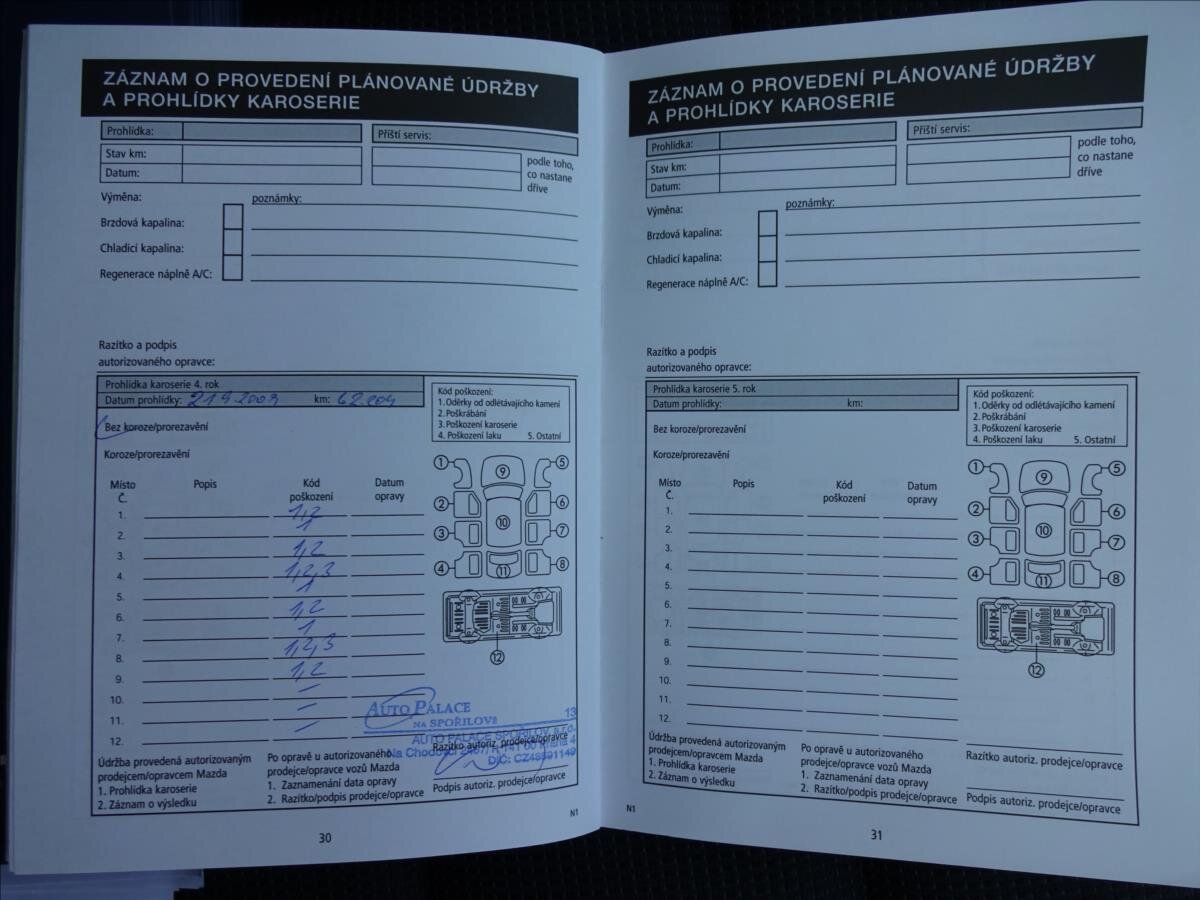 ZÁZNAM O PROVEDENÍ PLÁNOVANÉ ÚDRŽBY
A PROHLÍDKY KAROSERIE
Prohlídka:
Příští servis:
Stav km:
Datum:
podle toho,
co nastane
dříve
Výměna:
poznámky:
Brzdová kapalina:
Chladicí kapalina:
Regenerace náplně A/C:
Razítko a podpis
autorizovaného opravce:
Prohlídka karoserie 4. rok
Datum prohlídky:
km: 62.204
Kód poškození:
1. Oděrky od odlétávajícího kamení
2. Poškrábání
3. Poškození karoserie
4. Poškození laku 5. Ostatní
Bez koroze/prorezavění
Koroze/prorezavění
Místo
Č.
Popis
Kód
poškození
Datum
opravy
1. 1,2
2. 1
3. 1,2
4. 1,2,3
5. 1
6. 1,2
7. 1
8. 1,2,3
9. 1,2
10. –
11. –
12. –
1 9 5
2 6
10
3 7
4 11 8
12
AUTO PALACE
NA SPOŘILOVĚ
13
AUTO PALACE SPOŘILOV s.r.o.
Na Chodovci 2457/ 141 00 Praha 4
DIČ: CZ48591149
Údržba provedená autorizovaným
prodejcem/opravcem Mazda
1. Prohlídka karoserie
2. Záznam o výsledku
Po opravě u autorizovaného
prodejce/opravce vozů Mazda
1. Zaznamenání data opravy
2. Razítko/podpis prodejce/opravce
Razítko autoriz. prodejce/opravce
Podpis autoriz. prodejce/opravce
N1
30
ZÁZNAM O PROVEDENÍ PLÁNOVANÉ ÚDRŽBY
A PROHLÍDKY KAROSERIE
Prohlídka:
Příští servis:
Stav km:
Datum:
podle toho,
co nastane
dříve
Výměna:
poznámky:
Brzdová kapalina:
Chladicí kapalina:
Regenerace náplně A/C:
Razítko a podpis
autorizovaného opravce:
Prohlídka karoserie 5. rok
Datum prohlídky: km:
Kód poškození:
1. Oděrky od odlétávajícího kamení
2. Poškrábání
3. Poškození karoserie
4. Poškození laku 5. Ostatní
Bez koroze/prorezavění
Koroze/prorezavění
Místo
Č.
Popis
Kód
poškození
Datum
opravy
1.
2.
3.
4.
5.
6.
7.
8.
9.
10.
11.
12.
1 9 5
2 6
10
3 7
4 11 8
12
Údržba provedená autorizovaným
prodejcem/opravcem Mazda
1. Prohlídka karoserie
2. Záznam o výsledku
Po opravě u autorizovaného
prodejce/opravce vozů Mazda
1. Zaznamenání data opravy
2. Razítko/podpis prodejce/opravce
Razítko autoriz. prodejce/opravce
Podpis autoriz. prodejce/opravce
N1
31